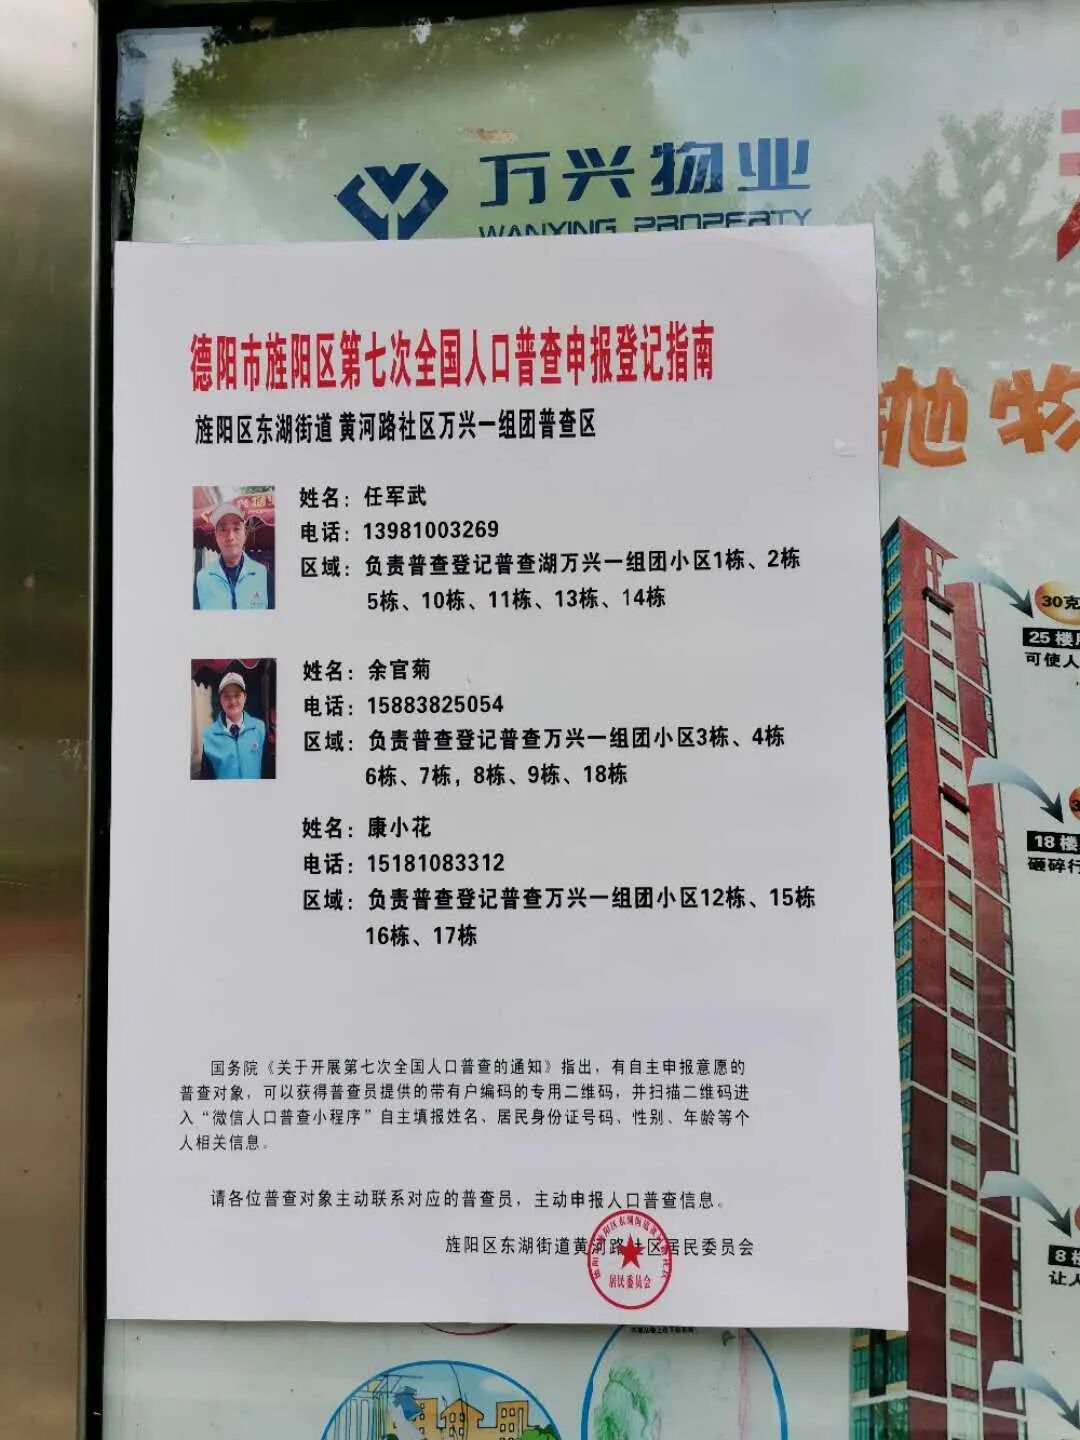 万兴物业
WANXING PROPERTY
德阳市旌阳区第七次全国人口普查申报登记指南
旌阳区东湖街道 黄河路社区万兴一组团普查区
姓名：任军武
电话：13981003269
区域：负责普查登记普查湖万兴一组团小区1栋、2栋
5栋、10栋、11栋、13栋、14栋
姓名：余官菊
电话：15883825054
区域：负责普查登记普查万兴一组团小区3栋、4栋
6栋、7栋，8栋、9栋、18栋
姓名：康小花
电话：15181083312
区域：负责普查登记普查万兴一组团小区12栋、15栋
16栋、17栋
国务院《关于开展第七次全国人口普查的通知》指出，有自主申报意愿的
普查对象，可以获得普查员提供的带有户编码的专用二维码，并扫描二维码进
入“微信人口普查小程序”自主填报姓名、居民身份证号码、性别、年龄等个
人相关信息。
请各位普查对象主动联系对应的普查员，主动申报人口普查信息。
旌阳区东湖街道黄河路社区居民委员会
居民委员会
抛物
30克
25楼
可使人
18楼
砸碎行
8楼
让人